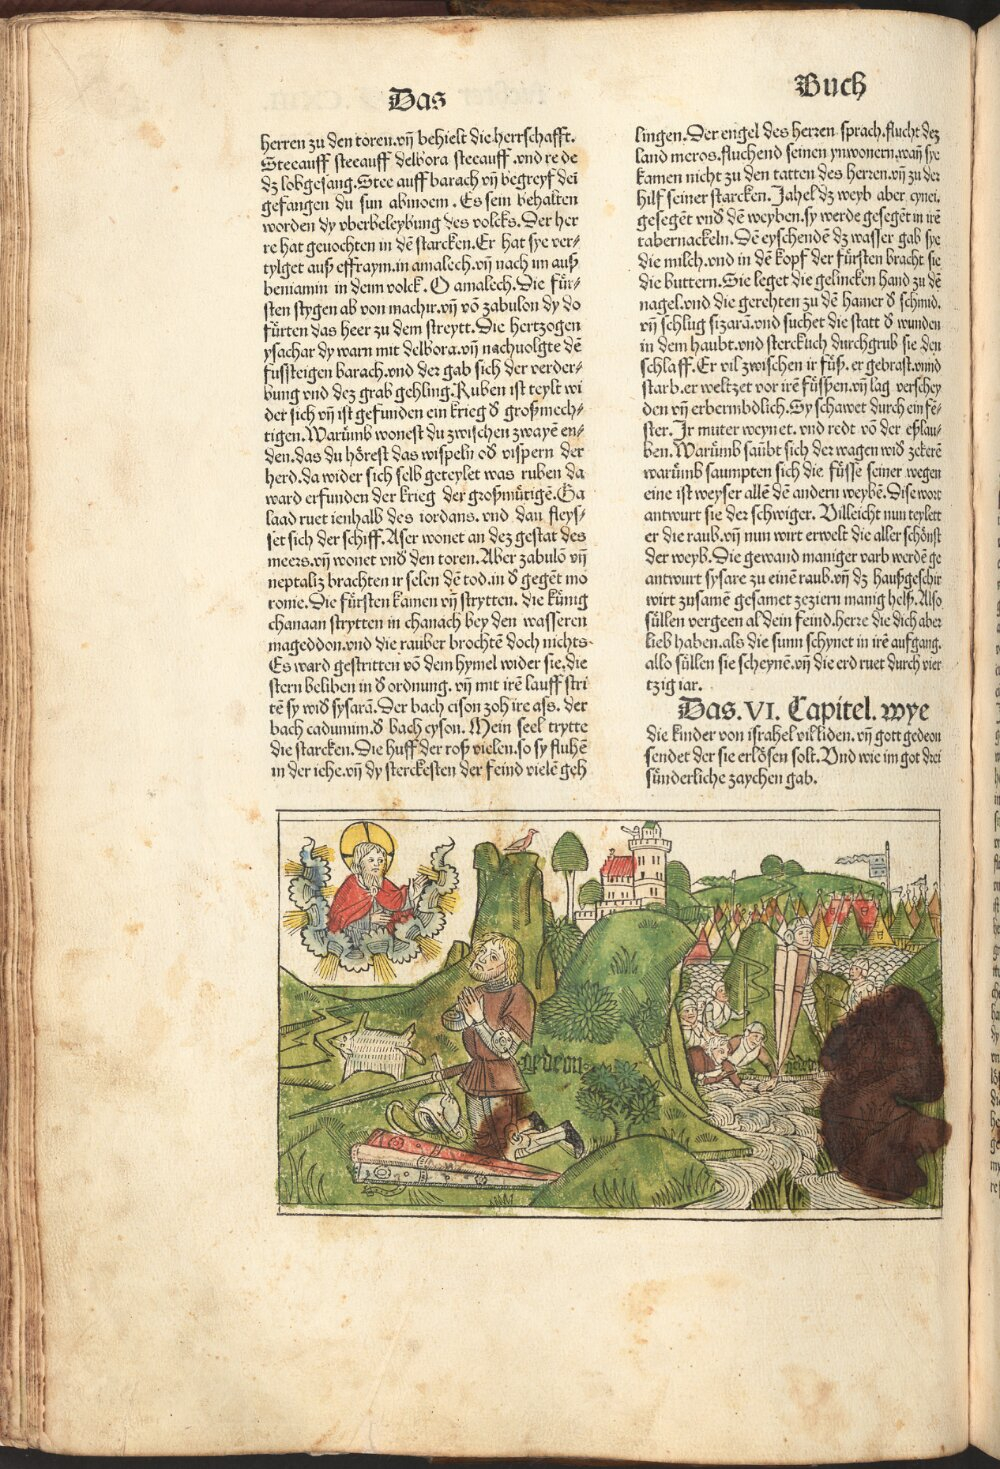 Das
Buch
herren zu den toren.vñ behielt die herrschafft.
Steeauff steeauff delbora steeauff.vnd re de
dz lobgesang.Stee auff barach vñ begreyf dei
gefangen du sun abinoem. Es sein behalten
worden dy vberbeleybung des volcks.Der her
re hat geuochten in dē starcken.Er hat sye ver/
tylget auß effraym.in amalech.vñ nach im auß
beniamin in deim volck.O amalech.Die für/
sten stygen ab von machir.vñ vō zabulon dy do
fürten das heer zu dem streytt.Die hertzogen
ysachar dy warn mit delbora.vñ nachuolgte dē
fussteigen barach.vnd der gab sich der verder/
bung vnd dez grab gehling.Ruben ist teylt wi
der sich vñ ist gefunden ein krieg d großmech/
tigen.Warümb wonest du zwischen zwayē en/
den.das du hörest das wispeln od vispern der
herd.da wider sich selb geteylet was ruben da
ward erfunden der krieg der großmütigē.Ga
laad ruet ienhalb des iordans.vnd dan fleys/
set sich der schiff.Aser wonet an dez gestat des
meers.vñ wonet vnd den toren.Aber zabulō vñ
neptaliz brachten ir selen dē tod.in d gegēt mo
ronie.Die fürsten kamen vñ strytten. die künig
chanaan strytten in chanach bey den wasseren
mageddon.vnd die rauber brochtē doch nichts.
Es ward gestritten vō dem hymel wider sie.die
stern beliben in d ordnung. vñ mit irē lauff stri
tē sy wid sysarā.Der bach cison zoh ire ass. der
bach cadumim.d bach cyson. Mein seel trytte
die starcken.Die huff der roß vielen.so sy fluhē
in der iche.vñ dy sterckesten der feind vielē geh
lingen.Der engel des herren sprach.flucht dez
land meros.fluchend seinen ynwonern.wañ sye
kamen nicht zu den tatten des herzen.vñ zu der
hilf seiner starcken.Jahel dz weyb aber cynei.
gesegēt vnd dē weyben.sy werde gesegēt in irē
tabernackeln.Dē eyschendē dz wasser gab sye
die milch.vnd in dē kopf der fürsten bracht sie
die buttern.Sie leget die gelincken hand zu dē
nagel.vnd die gerehten zu dē hamer d schmid.
vñ schlug sizarā.vnd suchet die statt d wunden
in dem haubt.vnd sterckluch durchgrub sie den
schlaff.Er vil zwischen ir füß. er gebrast.vnnd
starb.er weltzet vor irē füssen.vñ lag verschey
den vñ erbermbdlich.Sy schawet durch ein fē/
ster. Jr muter weynet. vnd redt vō der eßlau/
ben.Warümb saūbt sich der wagen wid zekerē
warümb saumpten sich die füsse seiner wegen
eine ist weyser allē dē andern weybē.Dise wort
antwurt sie der schwiger. Villeicht nun teylett
er die raub.vñ nun wirt erwelt die aller schönst
der weyb.Die gewand maniger varb werdē ge
antwurt sysare zu einē raub.vñ dz haußgeschir
wirt zusamē gesamet zeziern manig helß.Also
süllen vergeen al dein feind.herre die dich aber
lieb haben.als die sunn schynet in irē aufgang.
also süllen sie scheynē.vñ die erd ruet durch vier
tzig iar.
Das.VI. Capitel. wye
die kinder von israhel vil liden. vñ gott gedeon
sendet der sie erlösen solt.Vnd wie im got drei
sünderliche zaychen gab.
gedeon
gedeon